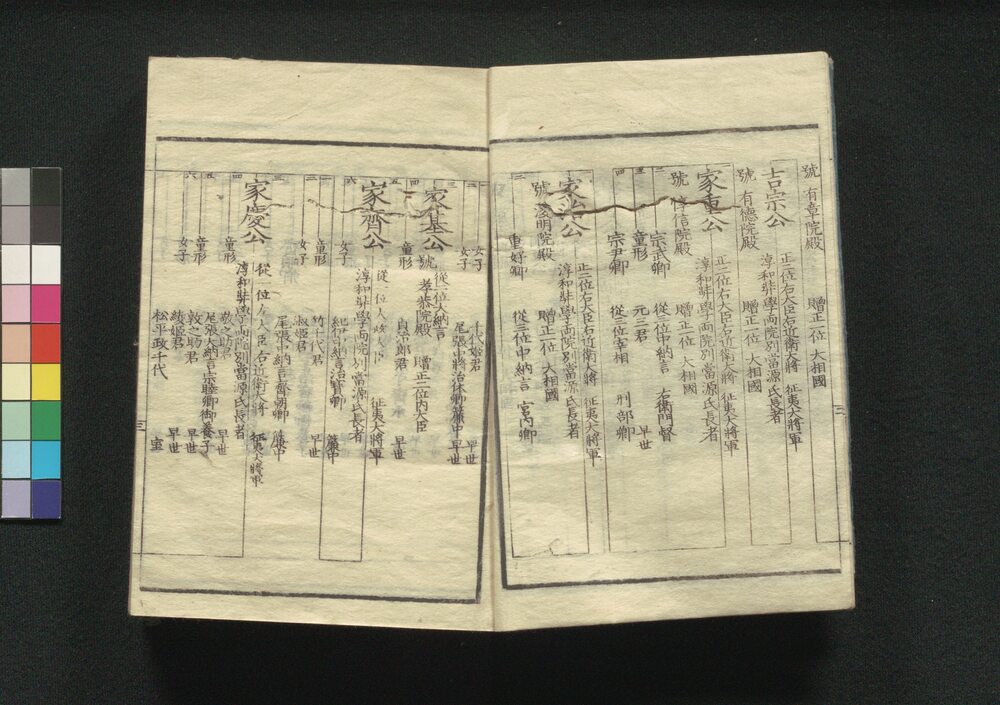 號 有章院殿 贈正一位 大相國
吉宗公 正二位右大臣右近衛大將 征夷大將軍
淳和奬學両院別當源氏長者
號 有徳院殿 贈正一位 大相國
家重公 正二位右大臣右近衛大將 征夷大將軍
淳和奬學両院別當源氏長者
號 惇信院殿 贈正一位 大相國
二 宗武卿 從三位中納言 右衛門督
三 童形 元三君 早世
四 宗尹卿 從三位宰相 刑部卿
家治公 正二位右大臣右近衛大將 征夷大將軍
淳和奬學両院別當源氏長者
號 浚明院殿 贈正一位 大相國
二 重好卿 從三位中納言 宮内卿
女子 千代姫君 早世
二 女子 尾張中將治休卿簾中 早世
家基公 從二位大納言
號 孝恭院殿 贈正二位内大臣
童形 貞次郎君 早世
家齊公 從一位 大臣 征夷大將軍
淳和奬學両院別當源氏長者
女子 紀伊中納言治寶卿 簾中
童形 竹千代君 早世
女子 淑姫君
尾張中納言齊朝卿 簾中
家慶公 從一位左大臣右近衛大將 征夷大將軍
淳和奬學両院別當源氏長者
童形 敬之助君 早世
尾張大納言宗睦卿御養子
童形 敦之助君 早世
女子 綾姫君 早世
松平政千代 室
三